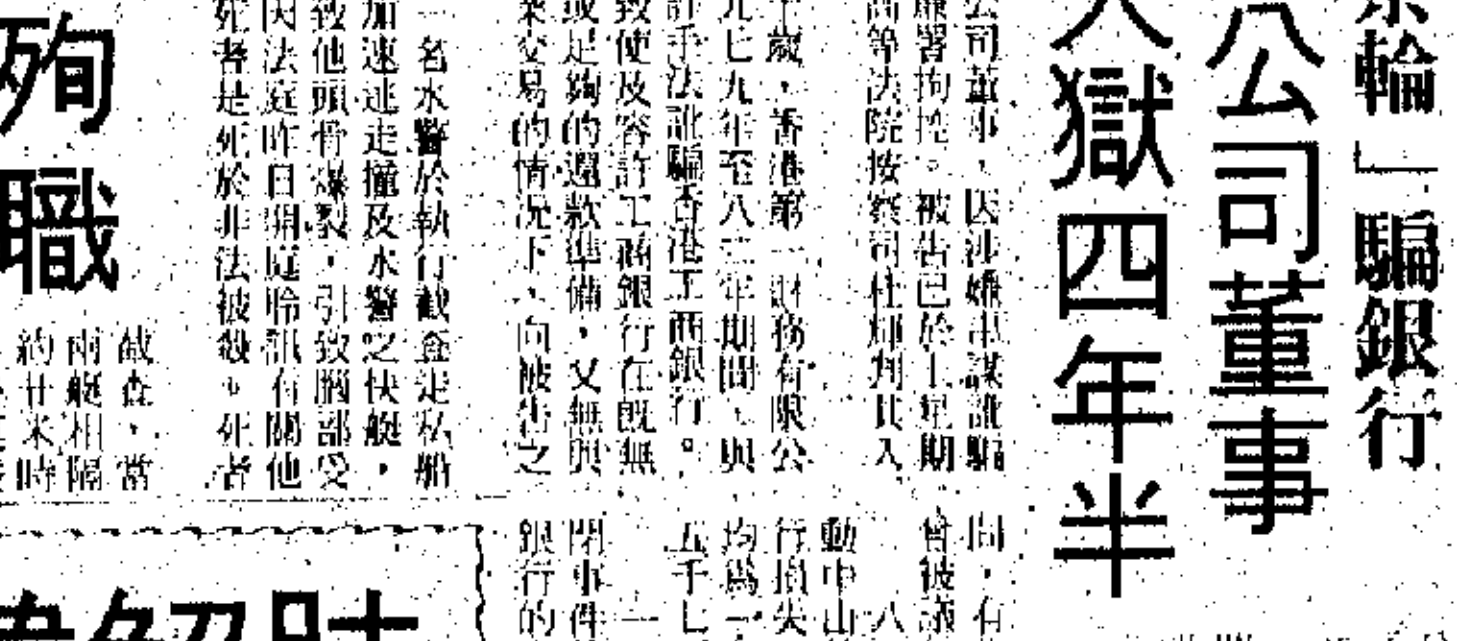 輪」騙銀行
公司董事
入獄四年半
公司董事,因涉嫌串謀訛騙
廉署拘控。被告已於上星期
高等法院按察司杜輝判其入
十歲,香港第一財務有限公
九七九年至八二年期間,與
手法訛騙香港工商銀行。
致使及容許工商銀行在既無
或足夠的還款準備,又無與
業交易的情況下,向被告之
同,有
曾被
八
動中山
行損失
均爲一
五千七
一
閉事件
銀行的
殉職
一名水警於執行截查走私船
加速逃走撞及水警之快艇,
致他頭骨爆裂,引致腦部受
因法庭昨日開庭聆訊有關他
死者是死於非法被殺。死者
截查,當
兩艇相隔
約廿米時